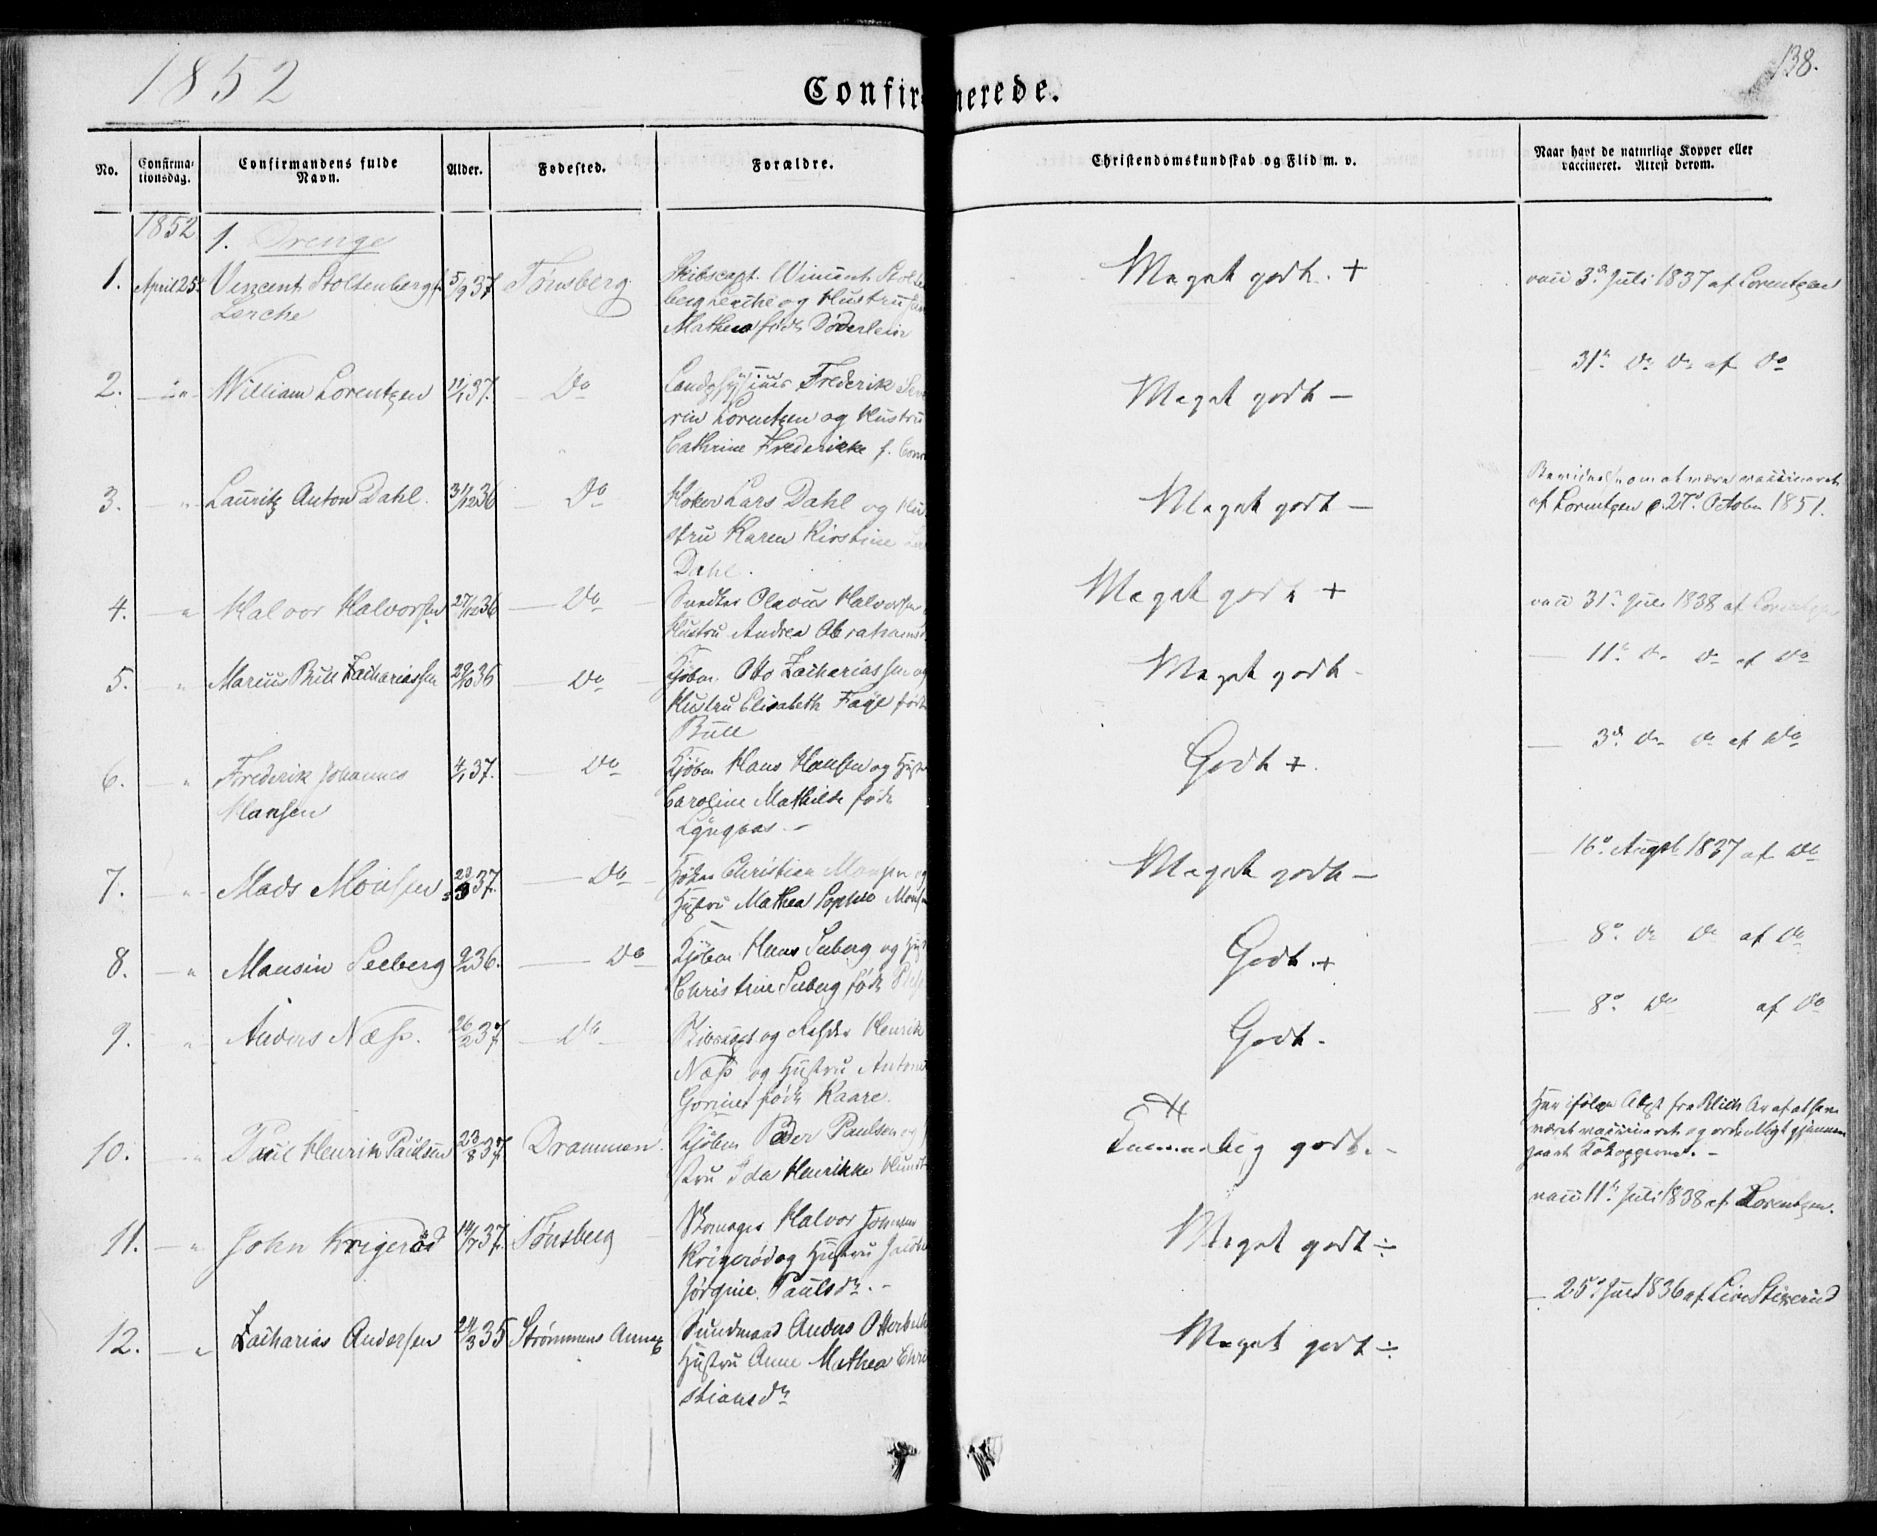 1852
138.
Confirmerede.
No.
Confirma-
tionsdag.
Confirmandens fulde
Navn.
Alder.
Fødested.
Forældre.
Christendomskundskab og Flid m. v.
Naar havt de naturlige Kopper eller
vaccineret. Attest derom.
1852
1. Drenge
1. April 25 Vincent Stoltenberg
Lerche
5/9 37 Tønsberg
Skibscapt. Vincent Stolten
berg Lerche og Hustru
Mathea født Døderlein
Meget godt. +
vacc 3die Juli 1837 af Lorentzen
2. William Lorentzen 11/1 37. Do
Landphysicus Frederik Seve
rin Lorentzen og Hustru
Cathrine Fredericke f.
Meget godt —
31te Do Do af Do
3. " Lauritz Anton Dahl. 31/12 36 Do
Høker Lars Dahl og Hu
stru Karen Kirstine
Dahl.
Meget godt —
om at være vaccineret
af Lorentzen 27d October 1851.
4. " Halvor Halvorsen 27/12 36 — Do
Olavus Halvorsen
Hustru Andrea Abrahams
Meget godt +
vacc 31te Juli 1838 af Lorentzen
5. " Marius Bull Zachariassen 29/10 36 — Do
Kjøbm. Otto Zachariassen og
Hustru Elisabeth Faye født
Bull
Meget godt -
— 11te Do Do af Do
6. " Frederik Johannes
Hansen
4/1 37. — Do
Kjøbm Hans Hansen og Hust
Caroline Mathilde født
Lyngaas. —
Godt +.
— 3die Do Do af Do
7. " Mads Monsen 23/3 37. — Do
Høker Christian Monsen og
Hustru Mathea Sophie Mons
Meget godt —
— 16de Augst 1837 af Do
8. — " Mansin Seeberg 9/ 36. — Do
Kjøbm Hans Seeberg og Hust
Christine Seeberg født
Godt. +
— 8de Do Do af Do
9. — " Anders Næss. 26/2 37 — Do —
og Henrik
Næss og Hustru
født Kaare.
Godt.
— 8de Do af Do
10. — " Paul Henrik Paulsen 23/8 37 Drammen.
Kjøbm Peder Paulsen og
stru Ida Henrikke
godt. -
Har ifølge Attest fra Blich
været vaccineret og ordentligt gjennem
gaaet Kokopperne. —
11. — " John Krigerød 14/7 37. Tønsberg
Skomager Halvor Johnsen
Krigerød og Hustru
Jørgine Paulsdr. -
Meget godt ÷
vacc 11te Juli 1838 af Lorentzen.
12. — " Zacharias Andersen 24/3 35 Strømmens Annex
Sundmand Anders
Hustru Anne Mathea Chri
stiansdr
Meget godt ÷
— 25de Juni 1836 af